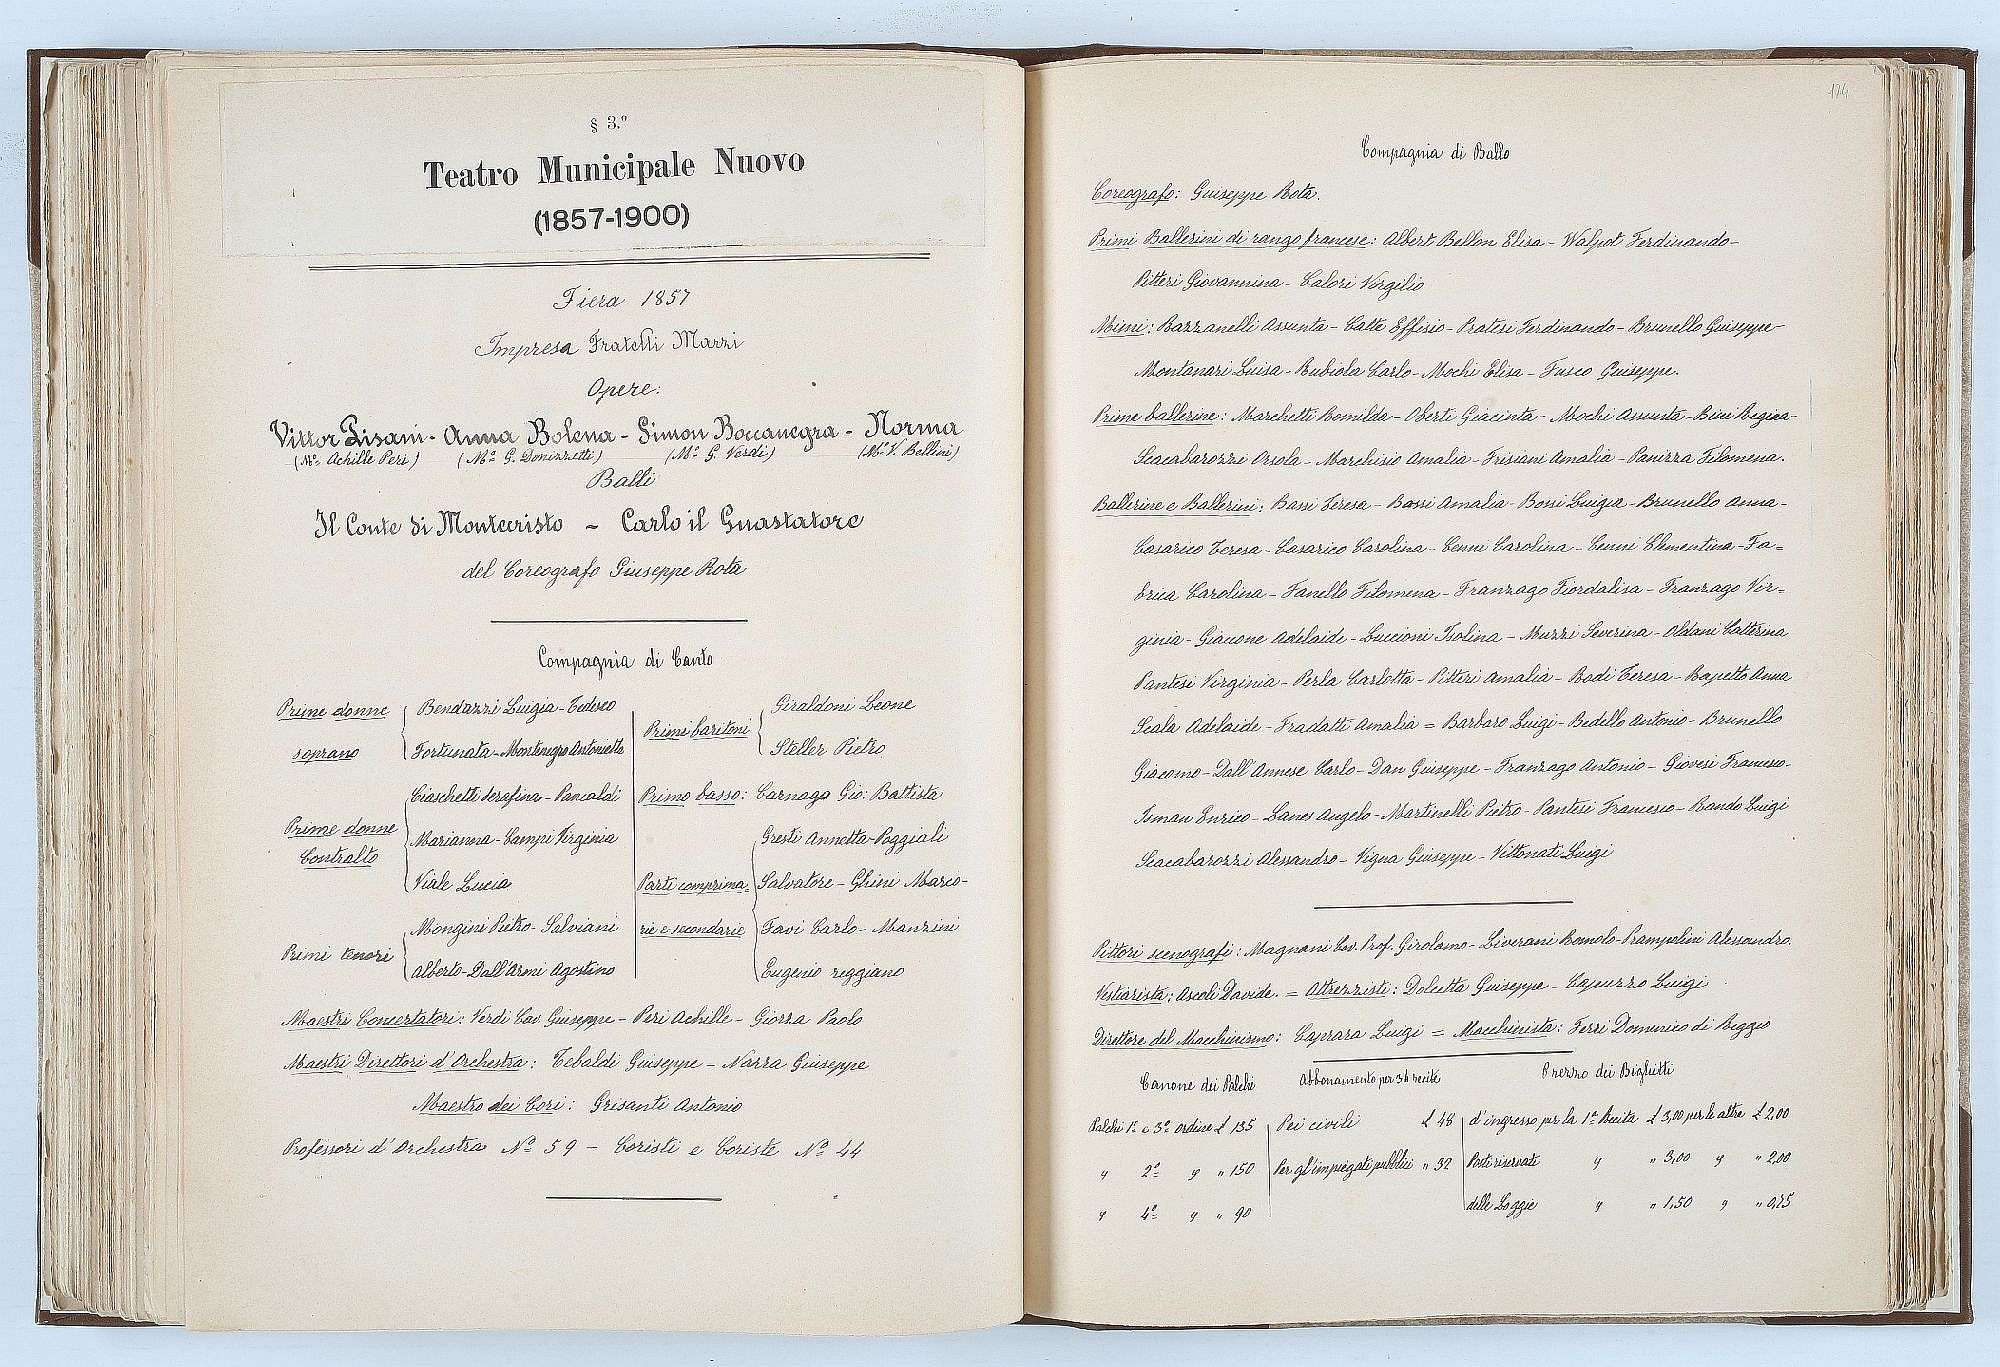 § 3.º
Teatro Municipale Nuovo
(1857-1900)
Fiera 1857
Impresa Fratelli Marzi
Opere:
Vittor Pisani - Anna Bolena - Simon Boccanegra - Norma
(Mº Achille Peri) (Mº G. Donizzetti) (Mº G. Verdi) (Mº V. Bellini)
Balli
Il Conte di Montecristo - Carlo il Guastatore
del Coreografo Giuseppe Rota
Compagnia di Canto
Prime donne soprano
Bendazzi Luigia - Tedesco
Fortunata - Montenegro Antonietta
Prime donne Contralto
Ciaschetti Serafina - Pancaldi
Marianna - Campi Virginia
Viale Lucia
Primi tenori
Mongini Pietro - Salviani
Alberto - Dall'Armi Agostino
Primi baritoni
Giraldoni Leone
Steller Pietro
Primo basso: Carnago Gio: Battista
Parti comprima=
rie e secondarie
Gresti Annetta - Poggiali
Salvatore - Ghini Marco -
Favi Carlo - Manzini
Eugenio reggiano
Maestri Concertatori: Verdi Cav Giuseppe - Peri Achille - Giorza Paolo
Maestri Direttori d'Orchestra: Tebaldi Giuseppe - Narza Giuseppe
Maestro dei Cori: Grisanti Antonio
Professori d'Orchestra Nº 59 - Coristi e Coriste Nº 44
Compagnia di Ballo
Coreografo: Giuseppe Rota.
Primi Ballerini di rango francese: Albert Bellon Elisa - Walpot Ferdinando -
Pitteri Giovannina - Calori Virgilio
Mimi: Bazzanelli Assunta - Catte Effisio - Pratesi Ferdinando - Brunello Giuseppe -
Montanari Luisa - Rubiola Carlo - Mochi Elisa - Fusco Giuseppe.
Prime ballerine: Marchetti Romilda - Oberti Giacinta - Mochi Assunta - Bini Regina -
Scacabarozzi Orsola - Marchisio Amalia - Trisiani Amalia - Panizza Filomena.
Ballerine e Ballerini: Bassi Teresa - Bassi Amalia - Bossi Luigia - Brunello Anna -
Casarico Teresa - Casarico Carolina - Cenni Carolina - Cenni Clementina - Fa=
brica Carolina - Fanello Filomena - Franzago Fiordalisa - Franzago Vir=
ginia - Giacone Adelaide - Luccioni Isolina - Muzzi Severina - Oldani Catterina
Pantesi Virginia - Perla Carlotta - Pitteri Amalia - Rodi Teresa - Rapetto Anna
Scala Adelaide - Fradatti Amalia = Barbaro Luigi - Bedello Antonio - Brunello
Giacomo - Dall'Annese Carlo - Dan Giuseppe - Franzago Antonio - Giovesi Francesco -
Isman Enrico - Lanes Angelo - Martinelli Pietro - Pantesi Francesco - Rando Luigi
Scacabarozzi Alessandro - Vigna Giuseppe - Vittonati Luigi
Pittori scenografi: Magnani Cav. Prof. Girolamo - Liverani Romolo - Prampolini Alessandro.
Vestiarista: Ascoli Davide. = Attrezzisti: Dolcetta Giuseppe - Capuzzo Luigi
Direttore del Macchinismo: Caprara Luigi = Macchinista: Ferri Domenico di Reggio
Canone dei Palchi
Palchi 1º e 3º ordine £ 135
" 2º " " 150
" 4º " " 90
Abbonamento per 34 recite
Pei civili £ 48
Per gl'impiegati pubblici " 32
Prezzo dei Biglietti
d'ingresso per la 1ª Recita £ 3,00 per le altre £ 2,00
Posti riservati " " 3,00 " " 2,00
delle Loggie " " 1,50 " " 0,75